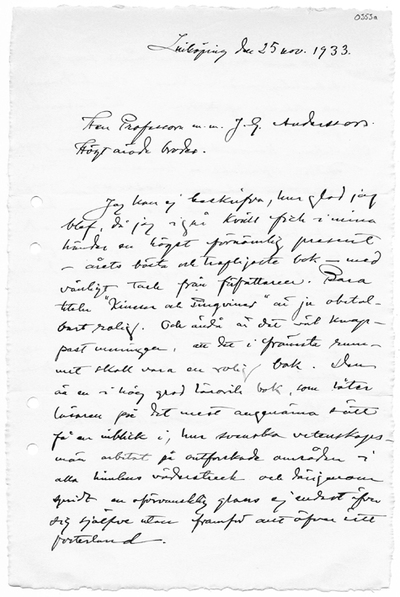 0353a
Linköping den 25 nov. 1933.
Herr Professorn m.m. J. G. Andersson.
Högt ärade broder.
Jag kan ej beskrifva, hur glad jag
blef, då jag igår kväll fick i mina
händer en högst förnämlig present
– årets bästa och trefligaste bok – med
vänligt tack från författaren. Bara
titeln "Kineser och Pingviner" är ju obetal-
bart rolig. Och ändå är det väl knap-
past meningen, att det i främsta rum-
met skall vara en rolig bok. Den
är en i hög grad lärorik bok, som låter
läsaren på det mest angenäma sätt
få en inblick i, hur svenska vetenskaps-
män arbetat på outforskade områden i
alla himlens väderstreck och därigenom
spridt en oförvansklig glans ej endast öfver
sig själfva utan framför allt öfver sitt
fosterland.